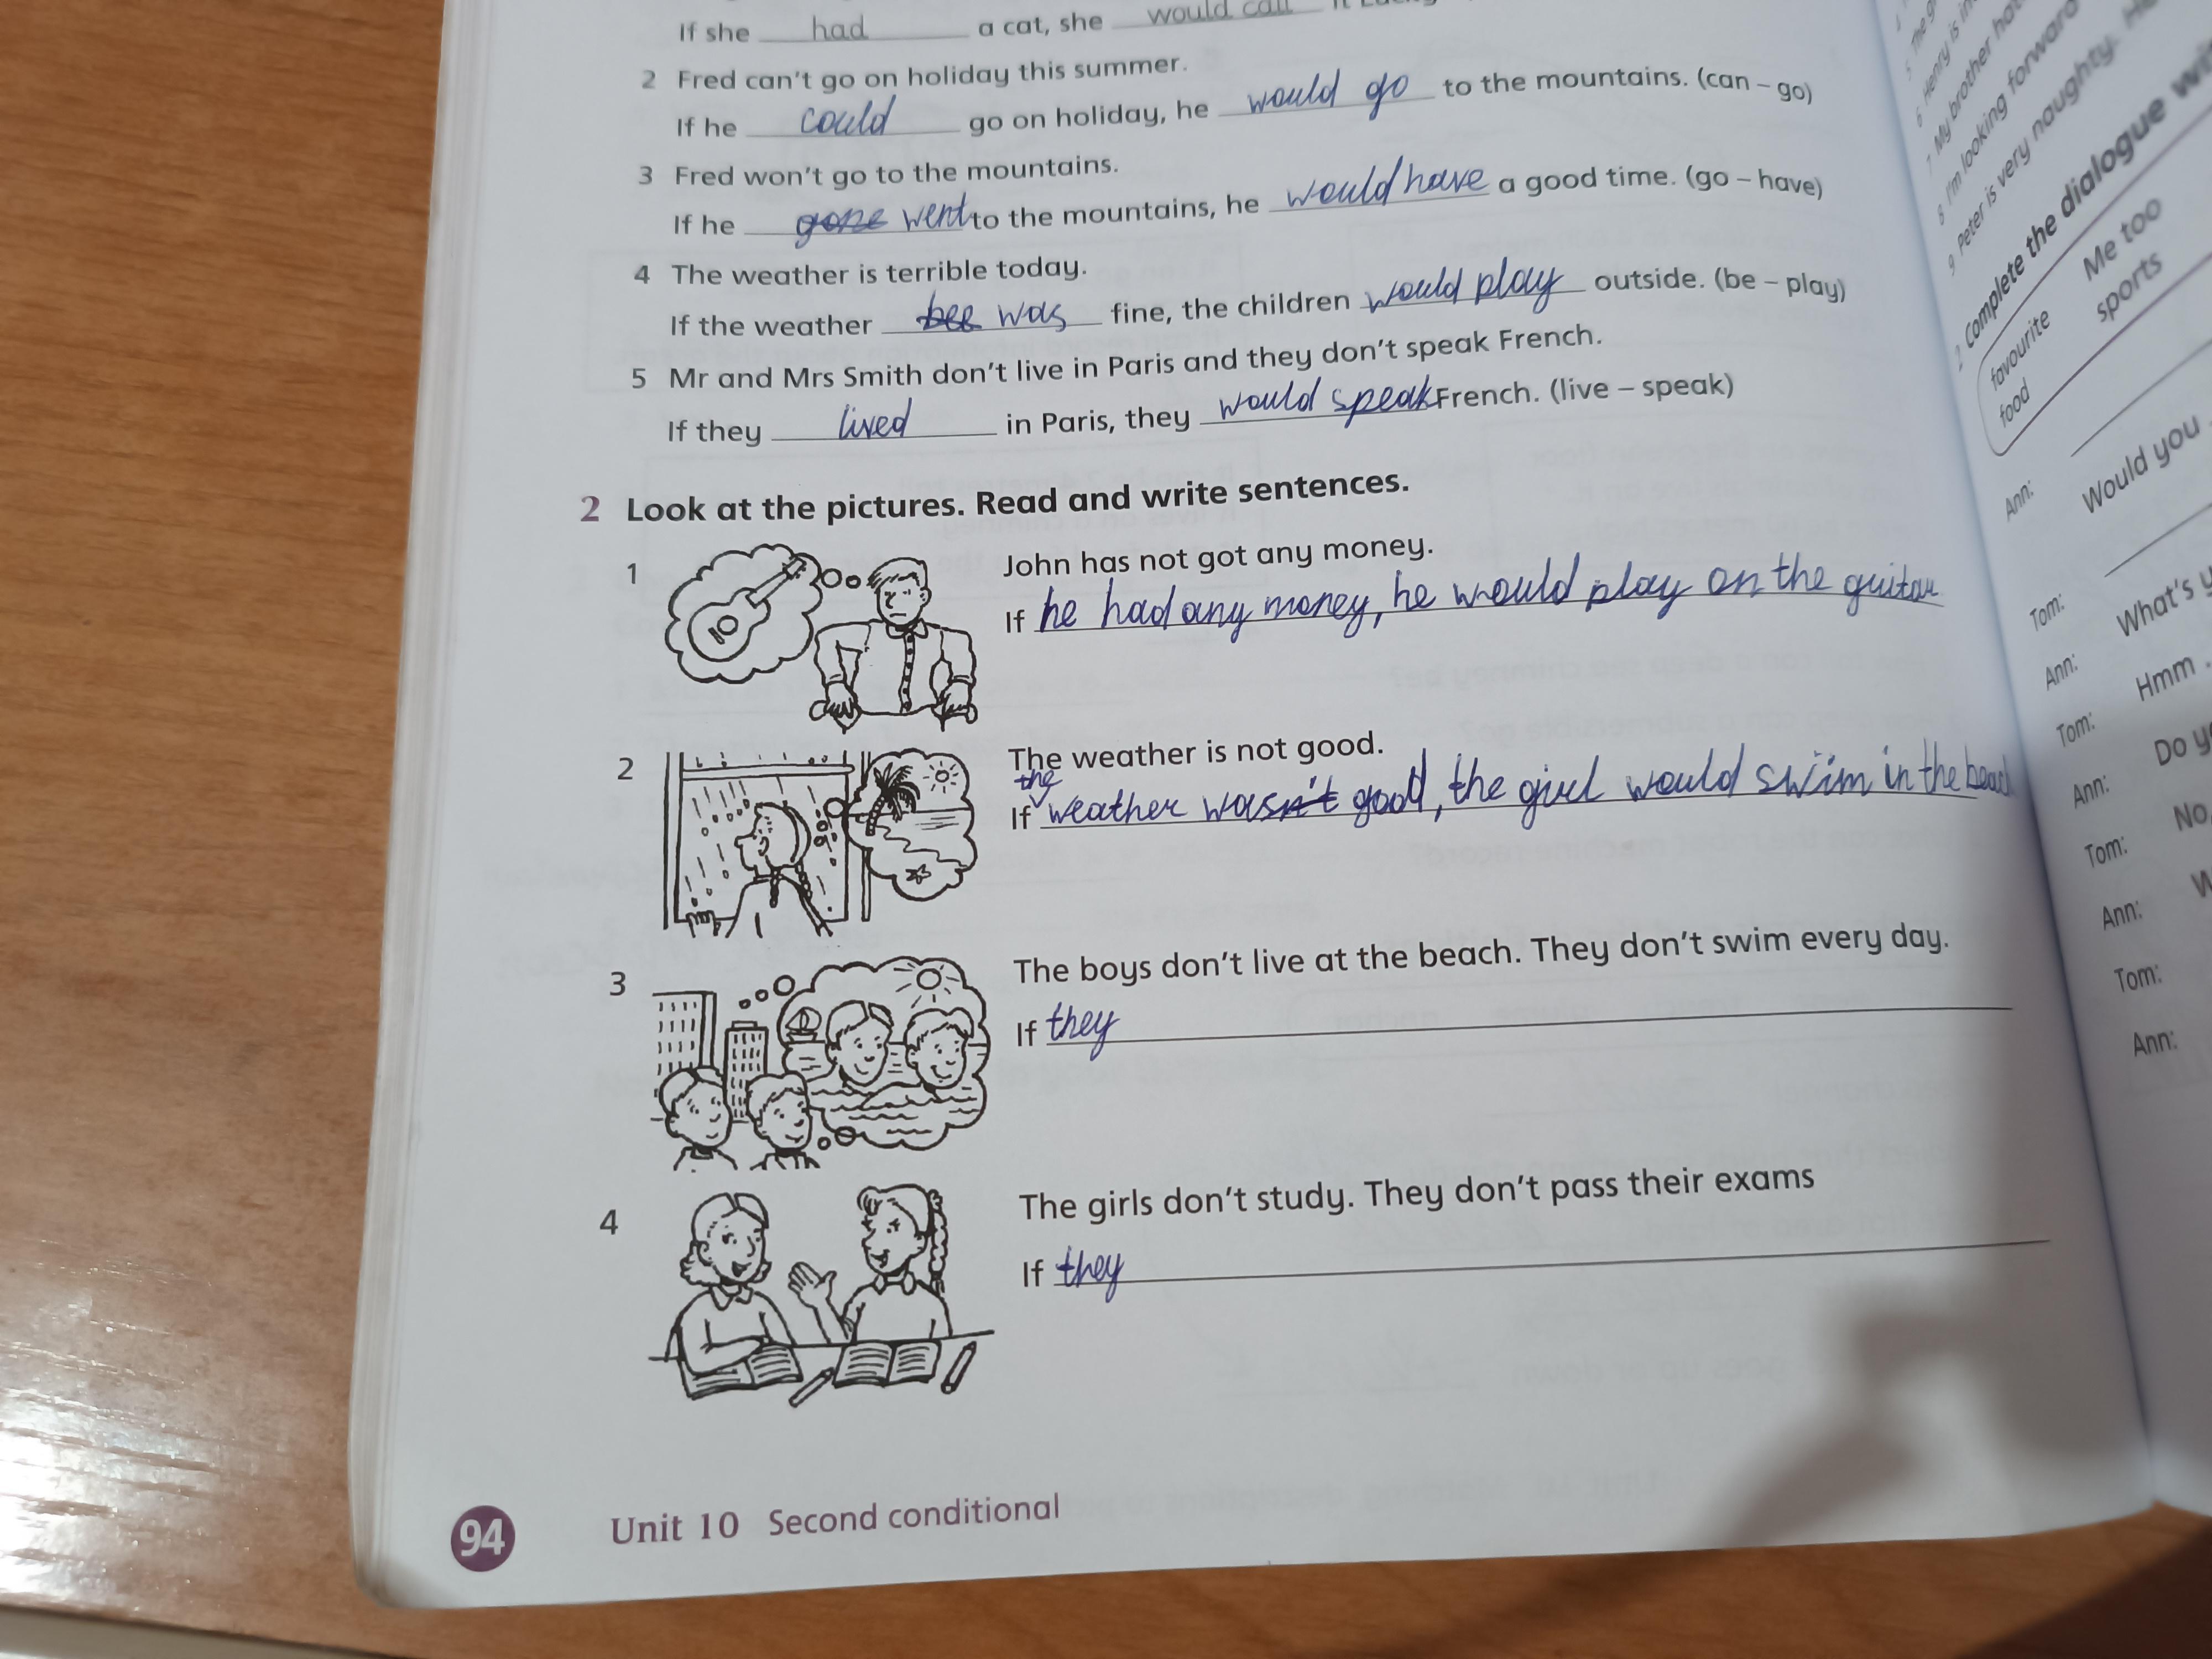 If she had a cat, she would call it
2 Fred can't go on holiday this summer.
If he could go on holiday, he would go to the mountains. (can – go)
3 Fred won't go to the mountains.
If he gone went to the mountains, he would have a good time. (go – have)
4 The weather is terrible today.
If the weather bee was fine, the children would play outside. (be – play)
5 Mr and Mrs Smith don't live in Paris and they don't speak French.
If they lived in Paris, they would speak French. (live – speak)
2 Look at the pictures. Read and write sentences.
1 John has not got any money.
If he had any money, he would play on the guitar
2 The weather is not good.
If the weather wasn't good, the girl would swim in the beach
3 The boys don't live at the beach. They don't swim every day.
If they
4 The girls don't study. They don't pass their exams
If they
94 Unit 10 Second conditional
5 The
6 Henry is in
7 My brother
8 I'm looking forward
9 Peter is very naughty.
2 Complete the dialogue
favourite Me too
food sports
Ann:
Would you
Tom:
Ann: What's
Tom: Hmm
Ann: Do
Tom: No,
Ann:
Tom:
Ann: